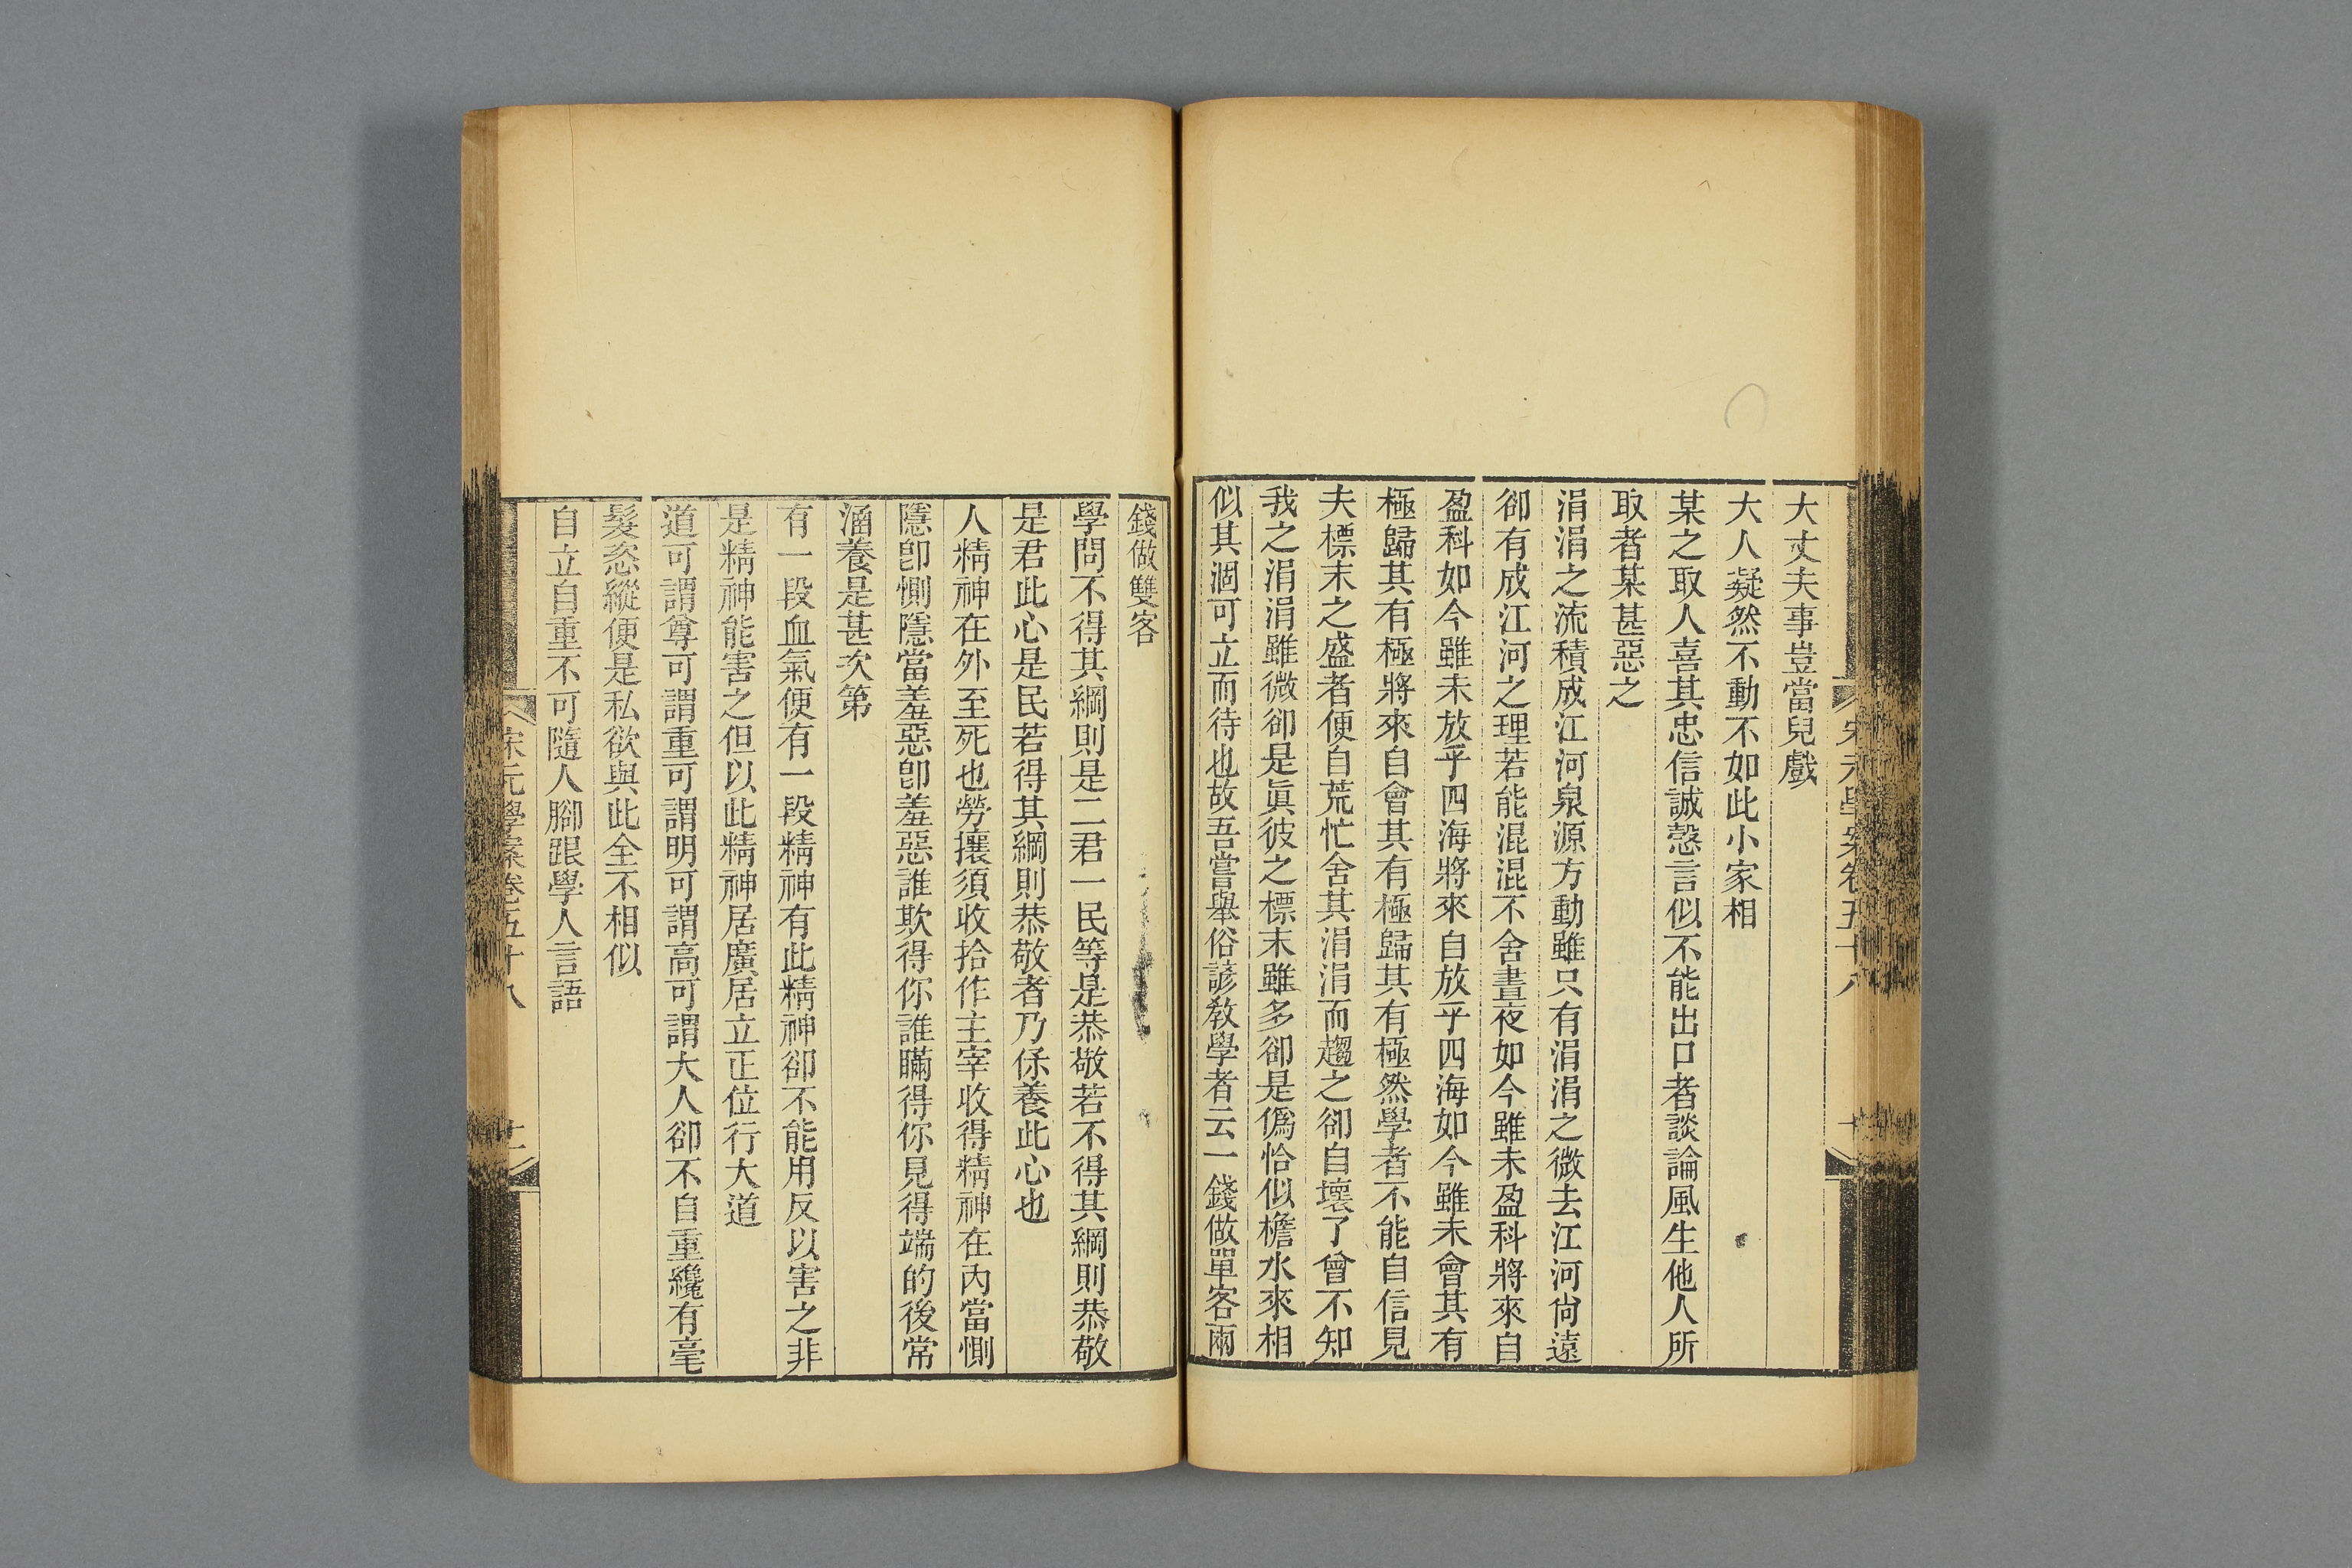 大丈夫事豈當兒戲
大人凝然不動不如此小家相
某之取人喜其忠信誠慤言似不能出口者談論風生他人所
取者某甚惡之
涓涓之流積成江河泉源方動雖只有涓涓之微去江河尙遠
卻有成江河之理若能混混不舍晝夜如今雖未盈科將來自
盈科如今雖未放乎四海將來自放乎四海如今雖未會其有
極歸其有極將來自會其有極歸其有極然學者不能自信見
夫標末之盛者便自荒忙舍其涓涓而趨之卻自壞了曾不知
我之涓涓雖微卻是眞彼之標末雖多卻是僞恰似檐水來相
似其涸可立而待也故吾嘗舉俗諺敎學者云一錢做單客兩
錢做雙客
學問不得其綱則是二君一民等是恭敬若不得其綱則恭敬
是君此心是民若得其綱則恭敬者乃保養此心也
人精神在外至死也勞攘須收拾作主宰收得精神在內當惻
隱卽惻隱當羞惡卽羞惡誰欺得你誰瞞得你見得端的後常
涵養是甚次第
有一段血氣便有一段精神有此精神卻不能用反以害之非
是精神能害之但以此精神居廣居立正位行大道
道可謂尊可謂重可謂明可謂高可謂大人卻不自重纔有毫
髮恣縱便是私欲與此全不相似
自立自重不可隨人腳跟學人言語
宋元學案卷五十八